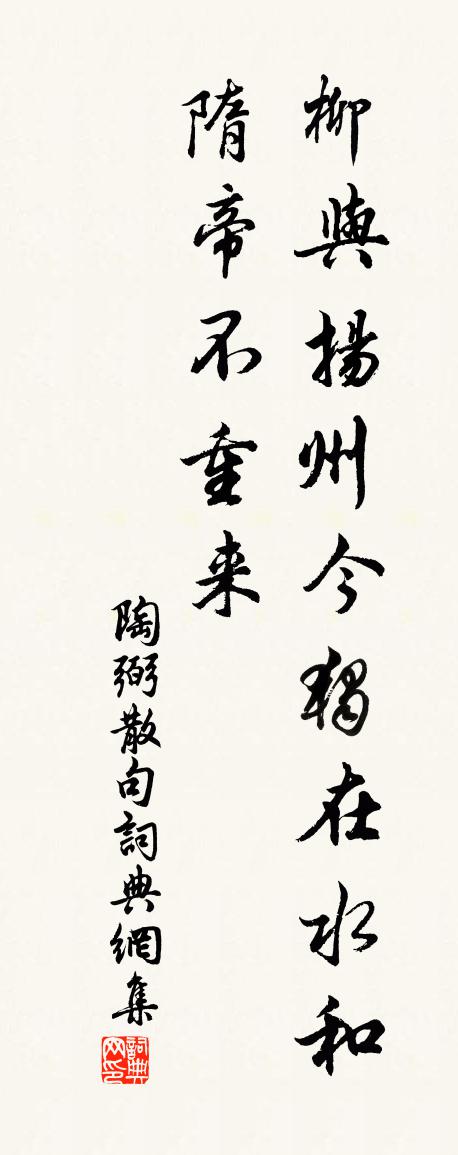 柳與揚州今獨在水和
隋帝不重来
陶弼散句詞典網集
詞典网印